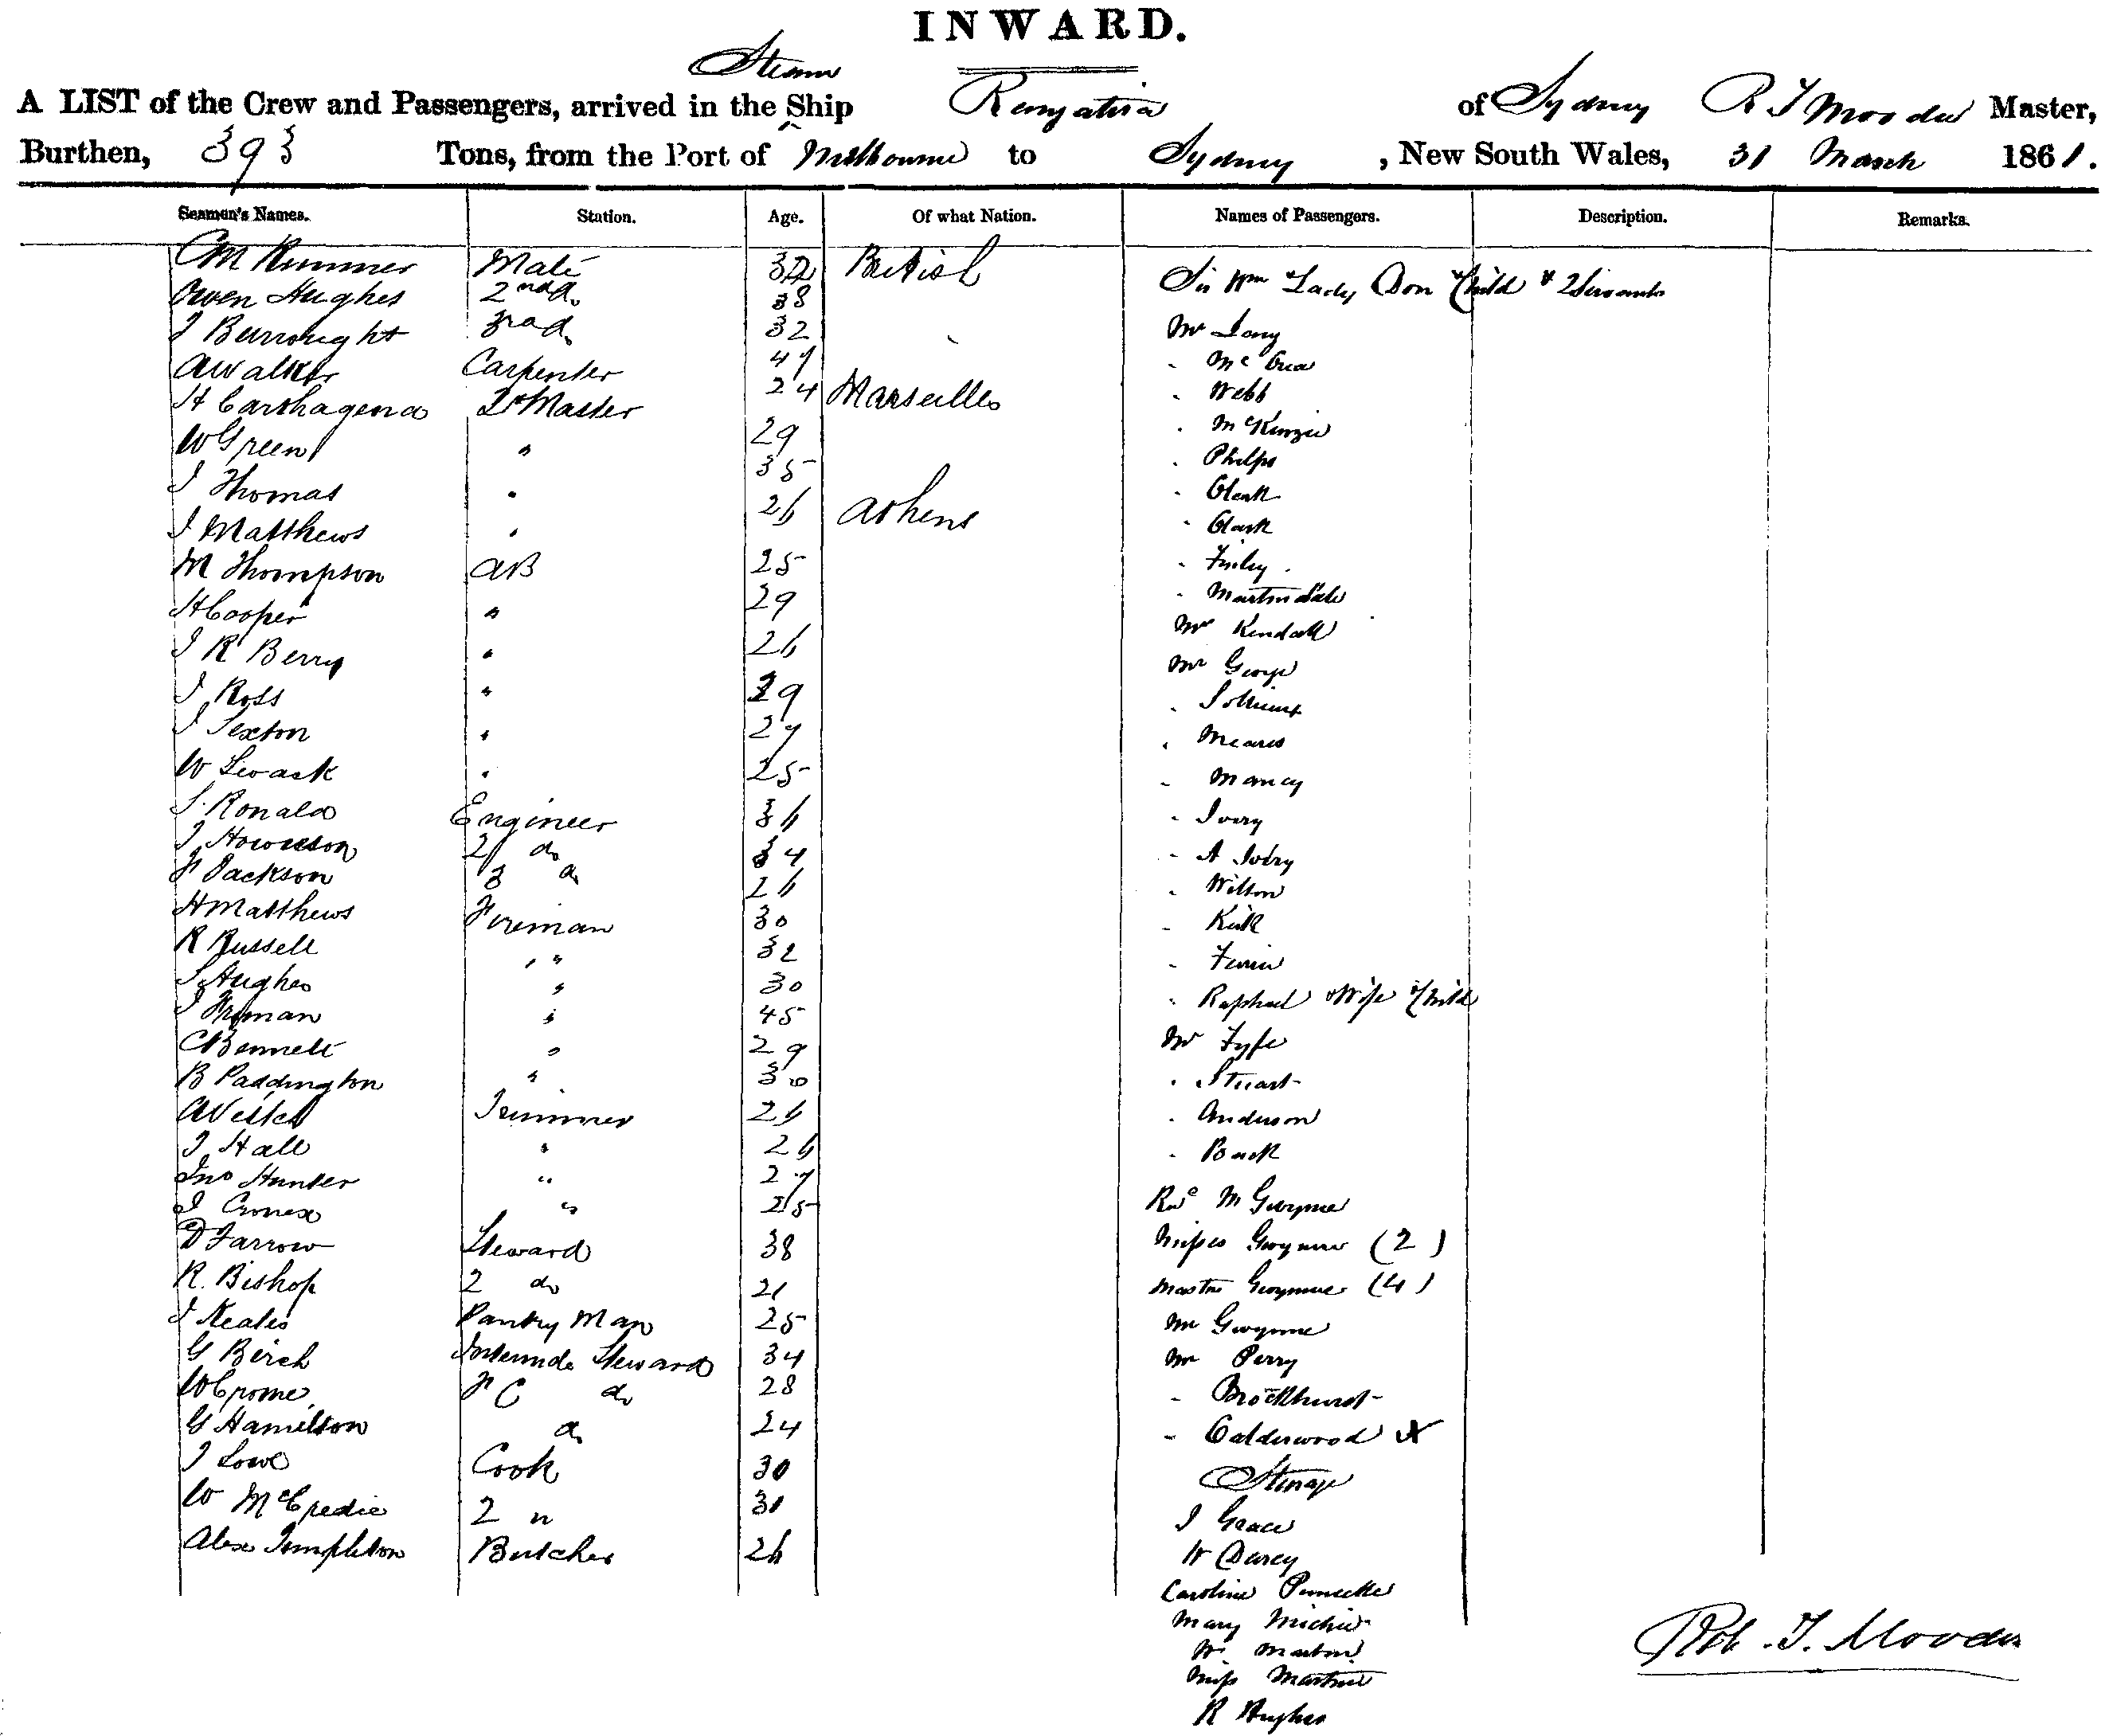 INWARD.
Steam
A LIST of the Crew and Passengers, arrived in the Ship Rangatira of Sydney R T Moodie Master,
Burthen, 393 Tons, from the Port of Melbourne to Sydney, New South Wales, 31 March 1861.
Seamen's Names. Station. Age. Of what Nation. Names of Passengers. Description. Remarks.
C M Rummer Mate 32 British
Sir Wm & Lady Don Child & 2 Servants
Owen Hughes 2nd do 38
J Burrought 3rd do 32
Mr Long
A Walker Carpenter 47
" McCrea
H Carthagena Qr Master 24 Marseilles
" Webb
W Green " 29
" McKenzie
J Thomas " 35
" Philps
J Matthews " 26 Athens
" Clark
" Clark
M Thompson AB 25
" Finley
H Cooper " 29
" Martindale
J R Berry " 26
Kendall
J Ross " 29
Mr George
J Sexton " 27
" Meares
W Swask " 25
" Mancy
S. Ronald Engineer 36
" Ivory
J Howieson 2 do 34
" A Ivory
F Jackson 3 do 26
" Wilson
H Matthews Fireman 30
" Kirk
R Russell " 32
S Hughes " 30
" Raphael & Wife & Child
J Truman " 45
C Bennett " 29
Mr Fyfe
B Paddington " 30
" Stuart
Trimmer 26
" Anderson
J Hall " 26
Jno Hunter " 27
" 25
Revd M Gwynne
D Farrow Steward 38
Misses Gwynne (2)
R. Bishop 2 do 21
Master Gwynne (4)
J Keates Pantry Man 25
Mr Gwynne
G Birch Intermde Steward 34
Mr Perry
W Crome F C do 28
" Brockhurst
G Hamilton do 24
" Calderwood X
J Lowe Cook 30
Steerage
W McCredie 2 " 31
J Grace
Alex Templeton Butcher 26
W Darcy
Caroline
Mary Michie
W. Martin
Miss Martin
R Hughes
Rob. T. Moodie